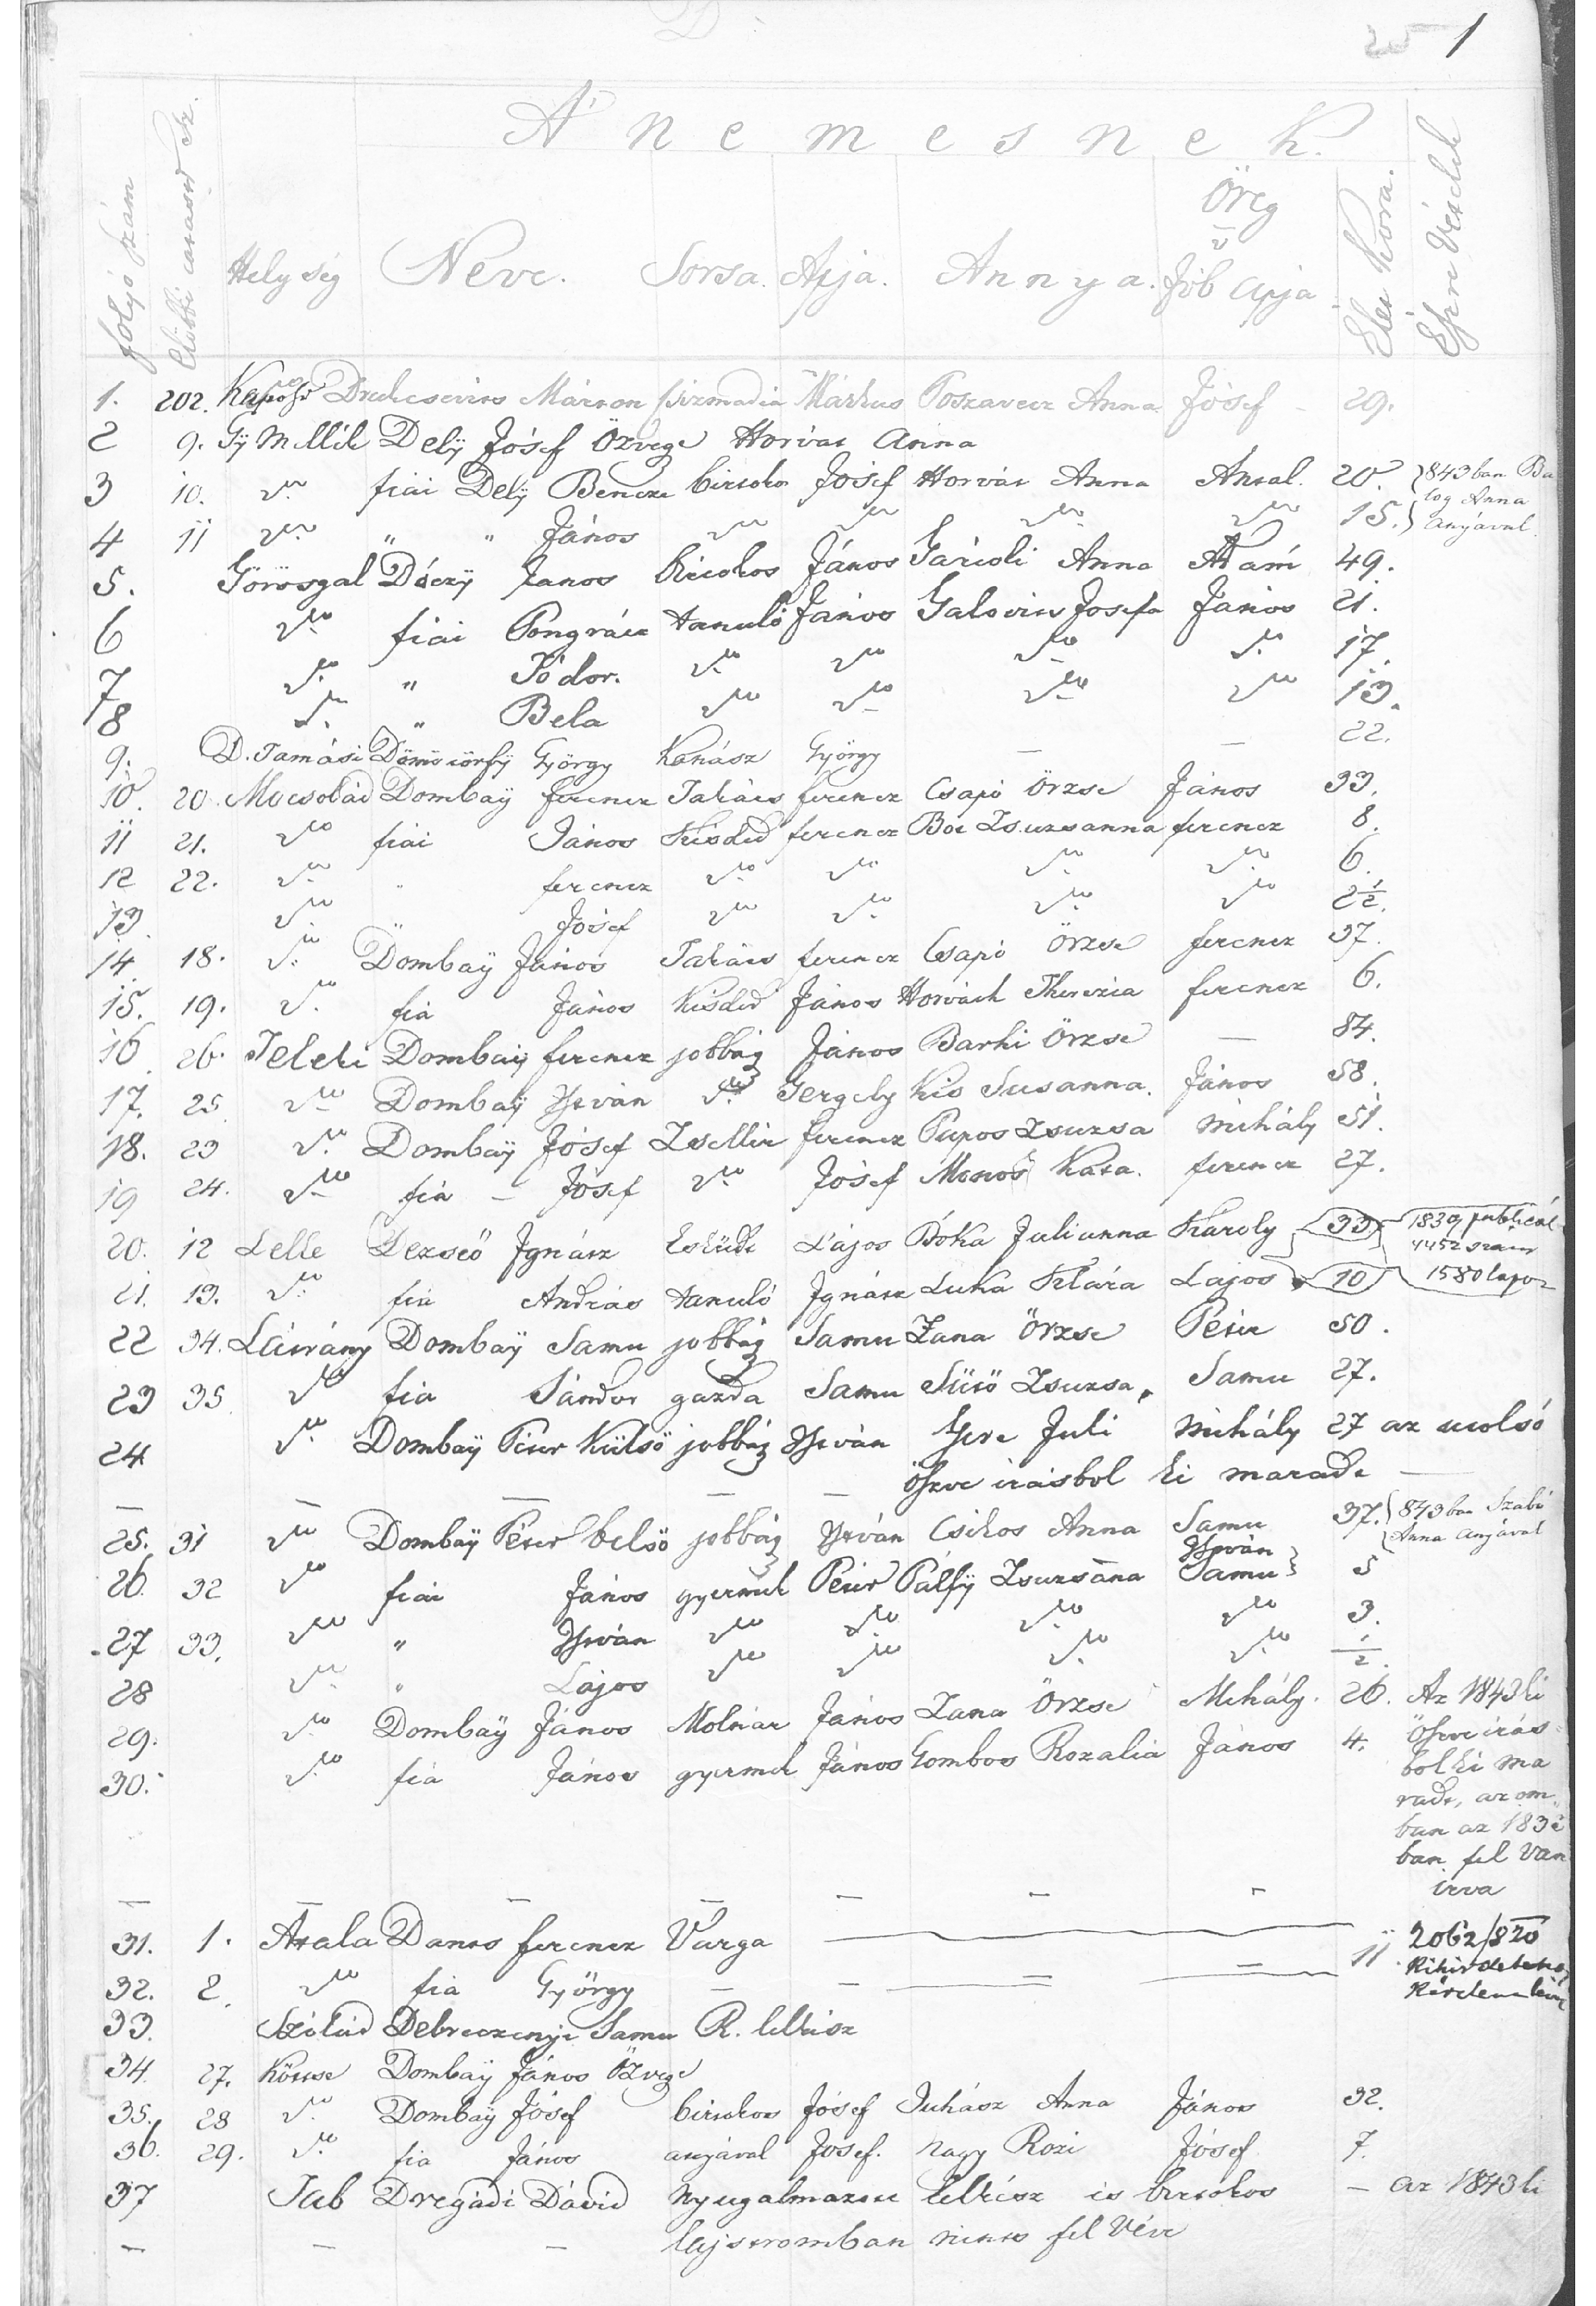 1
A' nemesnek.
folyó szám
Előbbi sz.
Helység
Neve.
Sorsa.
Apja.
Annya.
Öreg v Jób apja
Élet kora.
Észre vételek
1. 202. Márton Márkus Anna József – 29.
2 9. Gy Mellék Delÿ Jósef Özvege Horvát Anna
3 10. do fiai Delÿ Bencze birtokos Jósef Horvát Anna Antal. 20. 843ban Ba
log Anna
4 11 do " " János do do do do 15. anyával
5. Görösgal Dóczÿ János birtokos János Anna Ádám 49.
6 do fiai Pongrácz tanuló János Josefa János 21.
7 do " Tódor. do do do do 17.
8 do " Bela do do do do 13.
9. D. Tamási György Kanász György — — 22.
10. 20. Mocsolád Dombaÿ ferencz Takács ferencz Csapó Örzse János 33.
11 21. do fiai János Kisded ferencz Zsuzsanna ferencz 8.
12 22. do " ferencz do do do do 6.
13. do " Jósef do do do do 2 1/2.
14 18. do Dombaÿ János Takács ferencz Csapó Örzse ferencz 37.
15. 19. do fia János Kisded János Horváth Therezia ferencz 6.
16 26. Teleki Dombaÿ ferencz jobbág János Barki Örzse — 84.
17. 25 do Dombaÿ István do Gergely Kis Susanna. János 58.
18. 23 do Dombaÿ Jósef Zsellér ferencz Papos Zsuzsa Mihály 51.
19 24. do fia – Jósef do Jósef Kata. ferencz 27.
20. 12 Lelle Dezseő Ignácz Esküdt Lajos Bóka Julianna Károly 33 1839
4452 szám
21. 13. do fia András tanuló Ignácz Luka Klára Lajos 10 1580
22 34. Látrány Dombaÿ Samu jobbág Samu Zana Örzse Péter 50.
23 35. do fia Sándor gazda Samu Sütö Zsuzsa, Samu 27.
24 do Dombaÿ Péter Külsö jobbág István Juli Mihály 27 az utolsó
öszve irásbol ki maradt —
25. 31 do Dombaÿ Péter belsö jobbág István Csikos Anna Samu 37. 843ban Szabó
Anna anyával
István
26. 32 do fiai János gyermek Péter Pálfÿ Zsuzsána Samu 5
27 33. do " István do do do do 3.
28 do " Lajos do do do do 1/2.
29. do Dombaÿ János Molnár János Zana Örzse Mihály. 26. Az 1843ki
öszve irás=
30. do fia János gyermek János Gombos Rozalia János 4.
bol ki ma
radt, azom
ban az
ban fel van
irva
31. 1. Atala Dancs ferencz Varga 2062/820
32. 2. do fia György — 11
33. Szólád Debreczenÿi Samu R. lelkész
34. 27. Kötcse Dombaÿ János Özvege
35. 28 do Dombaÿ Jósef birtokos Jósef Juhász Anna János 32.
36. 29. do fia János anyával Josef. Nagy Rozi Jósef 7.
37 Tab Dregádi Dávid nyugalmazott lelkész is birtokos — az 1843ki
lajstromban nincs fel véve